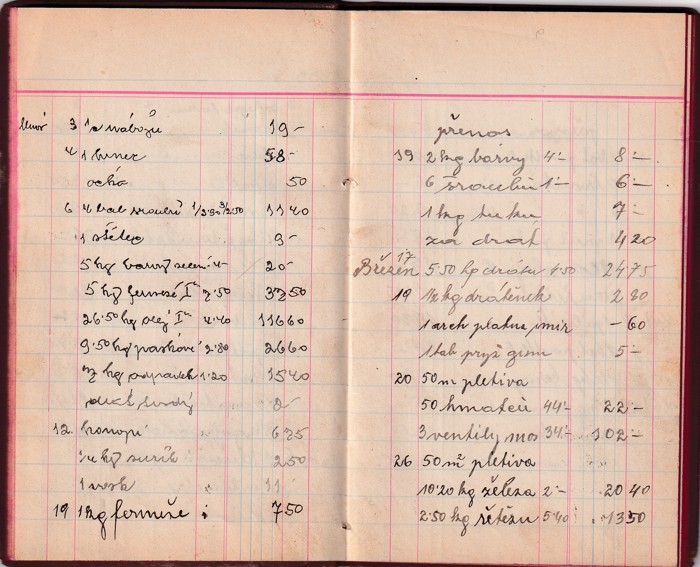 Únor 3 19-
4 1 hrnec 58-
očka 50
6 11 40
1 štětec 9-
5 kg barvy 4- 20-
5 kg fermeže Iª 7·50 37 50
26·50 kg olej Iª 4·40 116 60
9·50 kg paskové 2·80 26 60
kg odpadek 1·20 15 40
2-
12. konopí 6 75
1/4 kg suřík 2 50
1 vosk " 11
19 1 kg fermeže 7 50
přenos
19 2 kg barvy 4- 8-
6 šroubů 1- 6-
1 kg tuku 7-
za drát 4 20
Březen 17 5·50 kg drátu 4·50 24 75
19 1/2 kg drátěnek 2 80
1 arch plátna smir -60
1 tab pryž gum 5-
20 50 m pletiva
50 hmatců 44- 22-
3 ventily mos 34- 102-
26 50 m² pletiva " "
10·20 kg železa 2- 20 40
2·50 kg řetězu 5·40 13 50